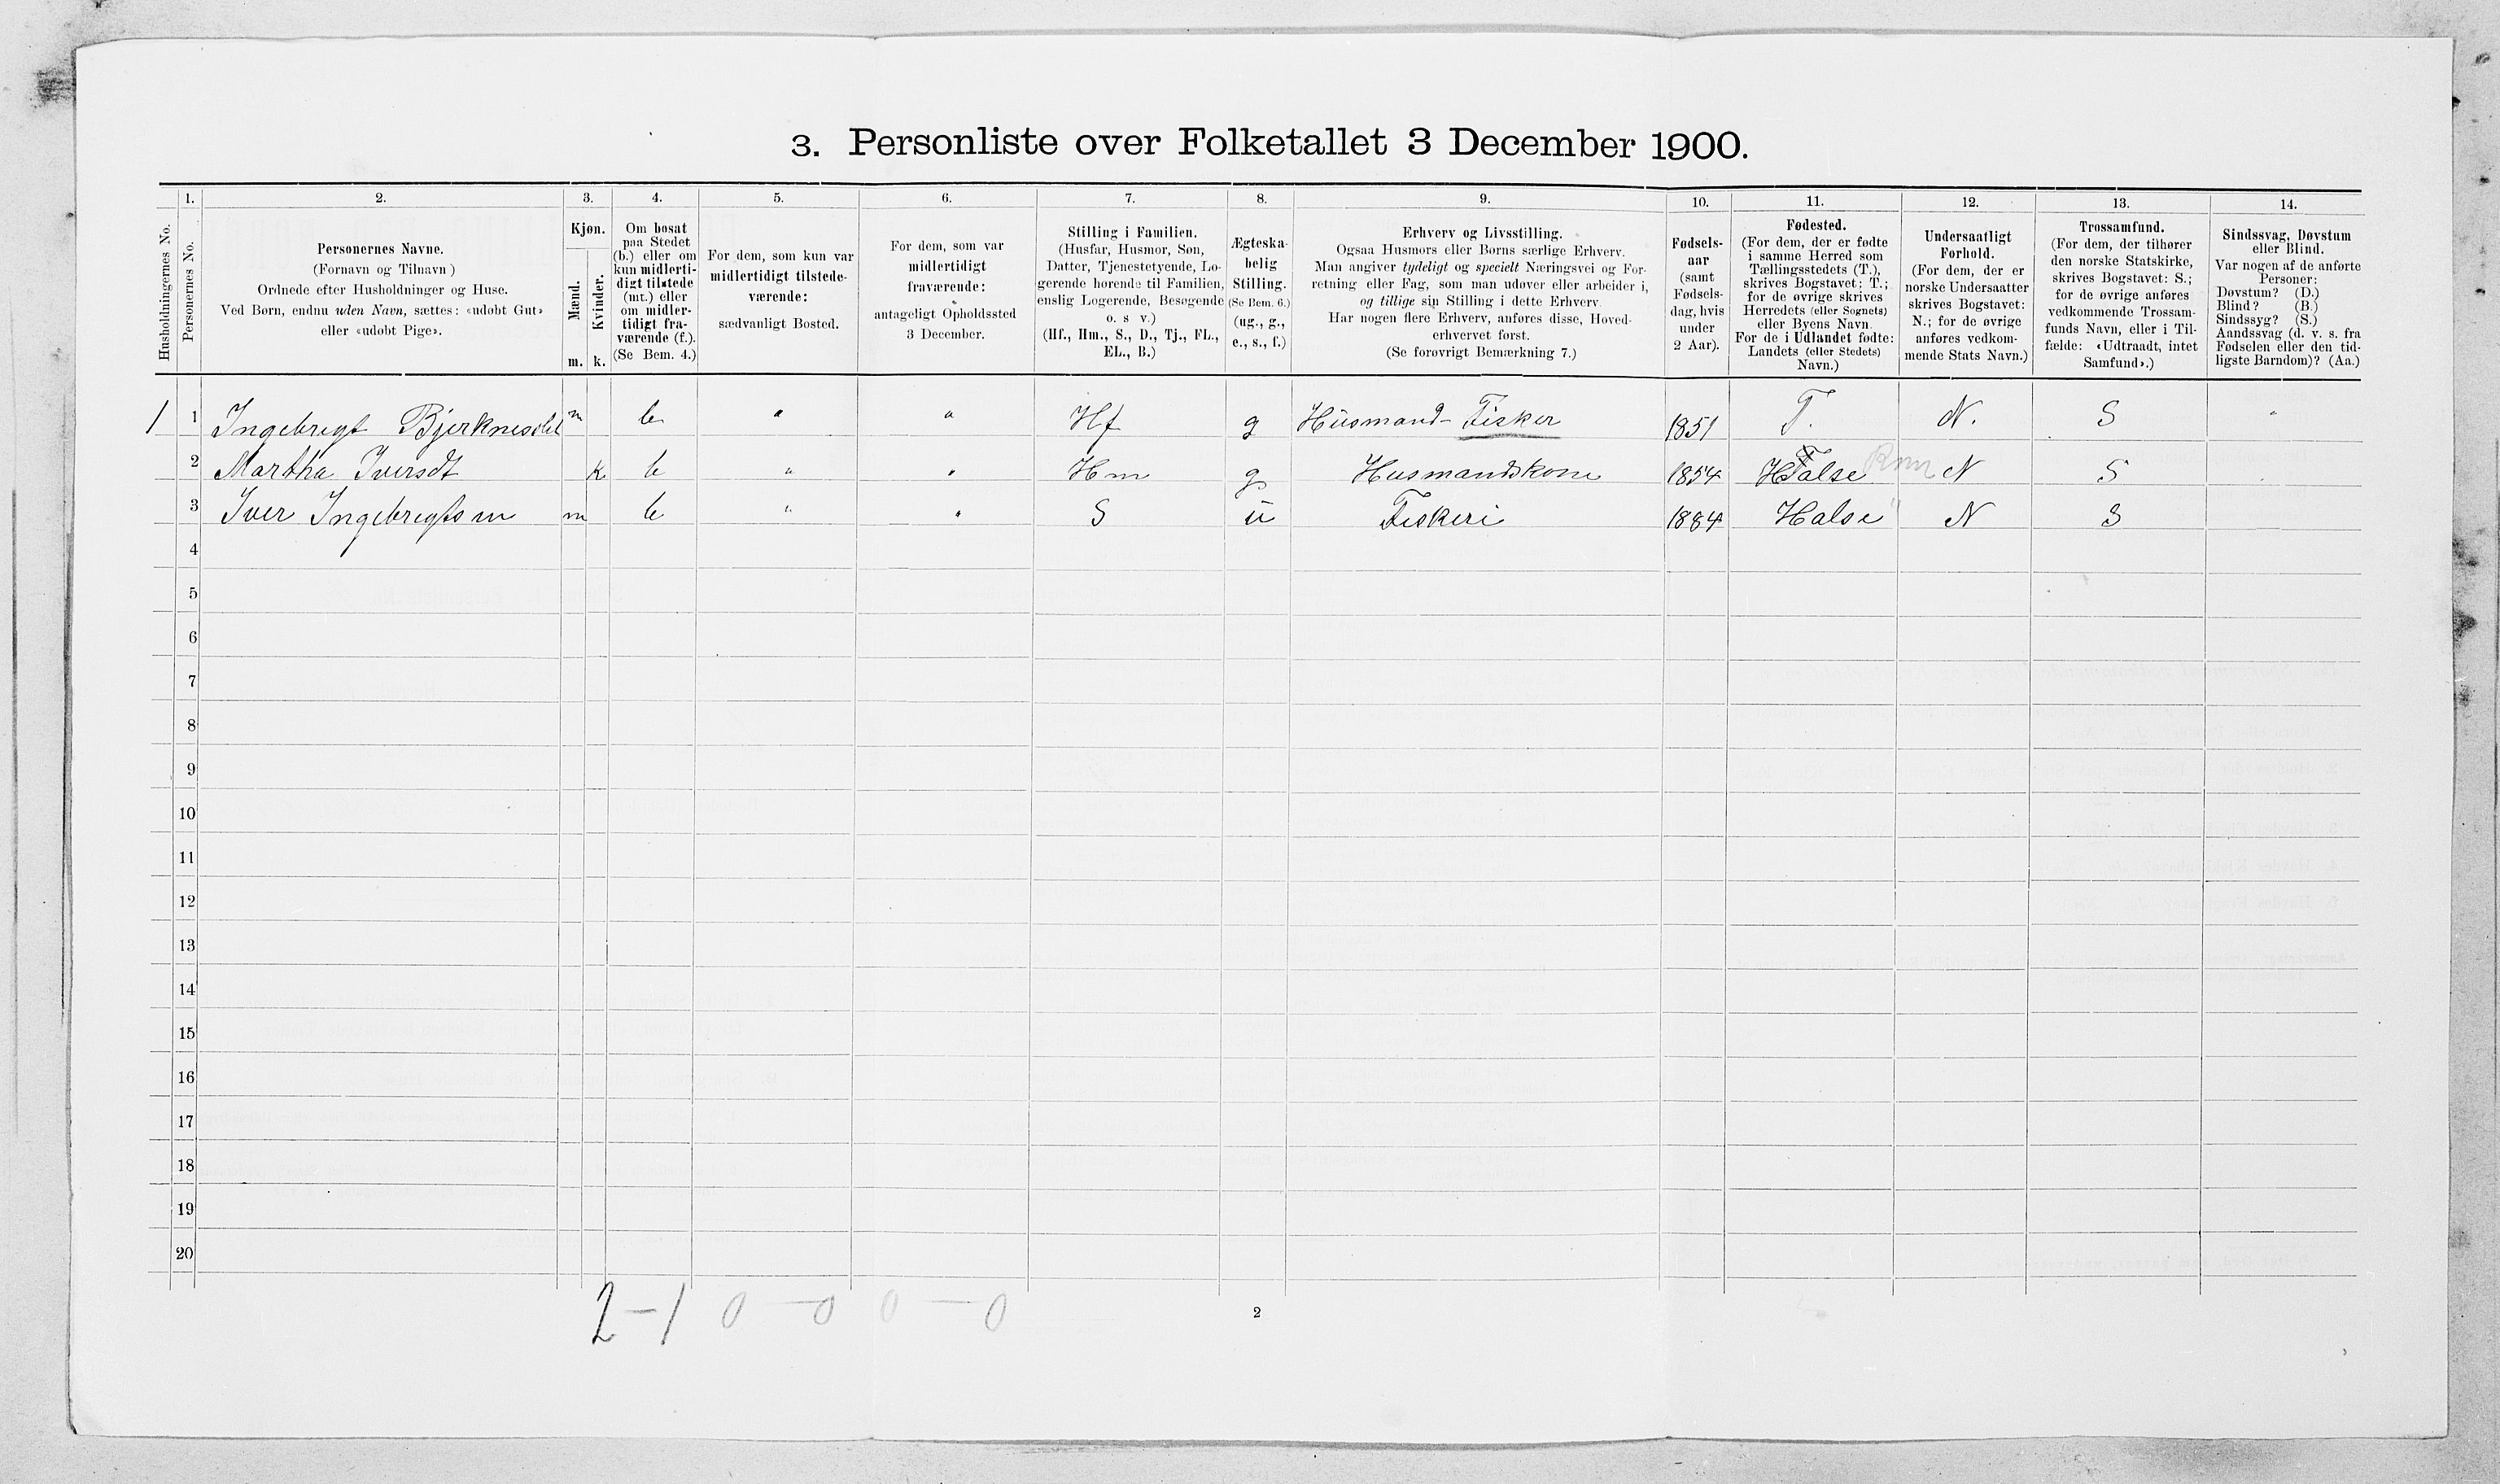 3. Personliste over Folketallet 3 December 1900.
Husholdningernes No.
1.
Personernes No.
2.
Personernes Navne.
(Fornavn og Tilnavn)
Ordnede efter Husholdninger og Huse.
Ved Børn, endnu uden Navn, sættes: «udøbt Gut»
eller «udøbt Pige».
3.
Kjøn.
Mænd.
Kvinder.
m. k.
4.
Om bosat
paa Stedet
(b.) eller om
kun midlerti-
digt tilstede
(mt.) eller
om midler-
tidigt fra-
værende (f.).
(Se Bem. 4.)
5.
For dem, som kun var
midlertidigt tilstede-
værende:
sædvanligt Bosted.
6.
For dem, som var
midlertidigt
fraværende:
antageligt Opholdssted
3 December.
7.
Stilling i Familien.
(Husfar, Husmor, Søn,
Datter, Tjenestetyende, Lo-
gerende hørende til Familien,
enslig Logerende, Besøgende
o. s v.)
(Hf., Hm., S., D., Tj., FL.,
EL., B.)
8.
Ægteska-
belig
Stilling.
(Se Bem. 6.)
(ug., g.,
e., s., f.)
9.
Erhverv og Livsstilling.
Ogsaa Husmors eller Børns særlige Erhverv.
Man angiver tydeligt og specielt Næringsvei og For-
retning eller Fag, som man udøver eller arbeider i,
og tillige sin Stilling i dette Erhverv.
Har nogen flere Erhverv, anføres disse, Hoved-
erhvervet først.
(Se forøvrigt Bemærkning 7.)
10.
Fødsels-
aar
(samt
Fødsels-
dag, hvis
under
2 Aar).
11.
Fødested.
(For dem, der er fødte
i samme Herred som
Tællingsstedets (T.),
skrives Bogstavet: T.;
for de øvrige skrives
Herredets (eller Sognets)
eller Byens Navn.
For de i Udlandet fødte:
Landets (eller Stedets)
Navn.)
12.
Undersaatligt
Forhold.
(For dem, der er
norske Undersaatter
skrives Bogstavet:
N.; for de øvrige
anføres vedkom-
mende Stats Navn.)
13.
Trossamfund.
(For dem, der tilhører
den norske Statskirke,
skrives Bogstavet: S.;
for de øvrige anføres
vedkommende Trossam-
funds Navn, eller i Til-
fælde: «Udtraadt, intet
Samfund».)
14.
Sindssvag, Døvstum
eller Blind.
Var nogen af de anførte
Personer:
Døvstum? (D.)
Blind? (B.)
Sindssyg? (S.)
Aandssvag (d. v. s. fra
Fødselen eller den tid-
ligste Barndom)? (Aa.)
1 1 Ingebrigt m b " " Hf g Husmand Fisker 1851 T. N. S "
2 Martha Iversdt k b " " Hm g Husmandskone 1854 N S
3 Iver Ingebrigtsen m b " " S u Fiskeri 1884 Halse N S
4
5
6
7
8
9
10
11
12
13
14
15
16
17
18
19
20
2-1 0-0 0-0
2